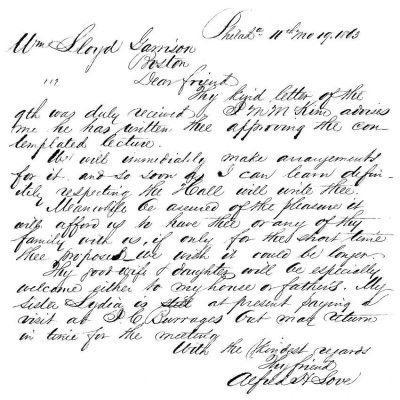 Philada 11th Mo 19, 1863
Wm Lloyd Garrison
Boston
Dear friend
Thy kind letter of the
9th was duly recieved J M McKim advises
me he has written thee approving the con-
templated lecture.
We will immediately make arrangements
for it, and so soon as I can learn defin-
itely respecting the Hall will write thee.
Meanwhile be assured of the pleasure it
will afford us to have thee or any of thy
family with us, if only for the short time
thee proposed we wish it could be longer
Thy good wife & daughter will be especially
welcome either to my house or fathers. My
sister Lydia is still at present paying a
visit at J C Burrages but may return
in time for the meeting
With the kindest regards
Thy friend
Alfred H Love